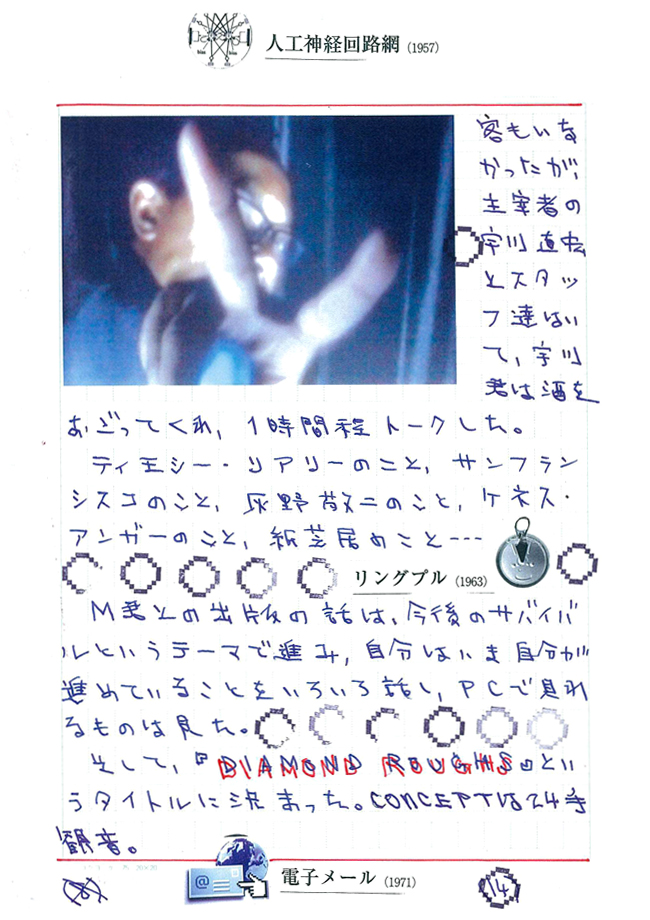 人工神経回路網 (1957)
客もいな
かったが、
主宰者の
宇川直宏
とスタッ
フ達はい
て、宇川
君は酒を
おごってくれ、1時間程トークした。
ティモシー・リアリーのこと、サンフラン
シスコのこと、灰野敬二のこと、ケネス・
アンガーのこと、紙芝居のこと---
リングプル (1963)
M君との出版の話は、今後のサバイバ
ルというテーマで進み、自分はいま自分が
進めていることをいろいろ話し、PCで見れ
るものは見た。
そして、『DIAMOND ROUGHS』とい
うタイトルに決まった。CONCEPTは24手
観音。
20×20
@
電子メール (1971)
14